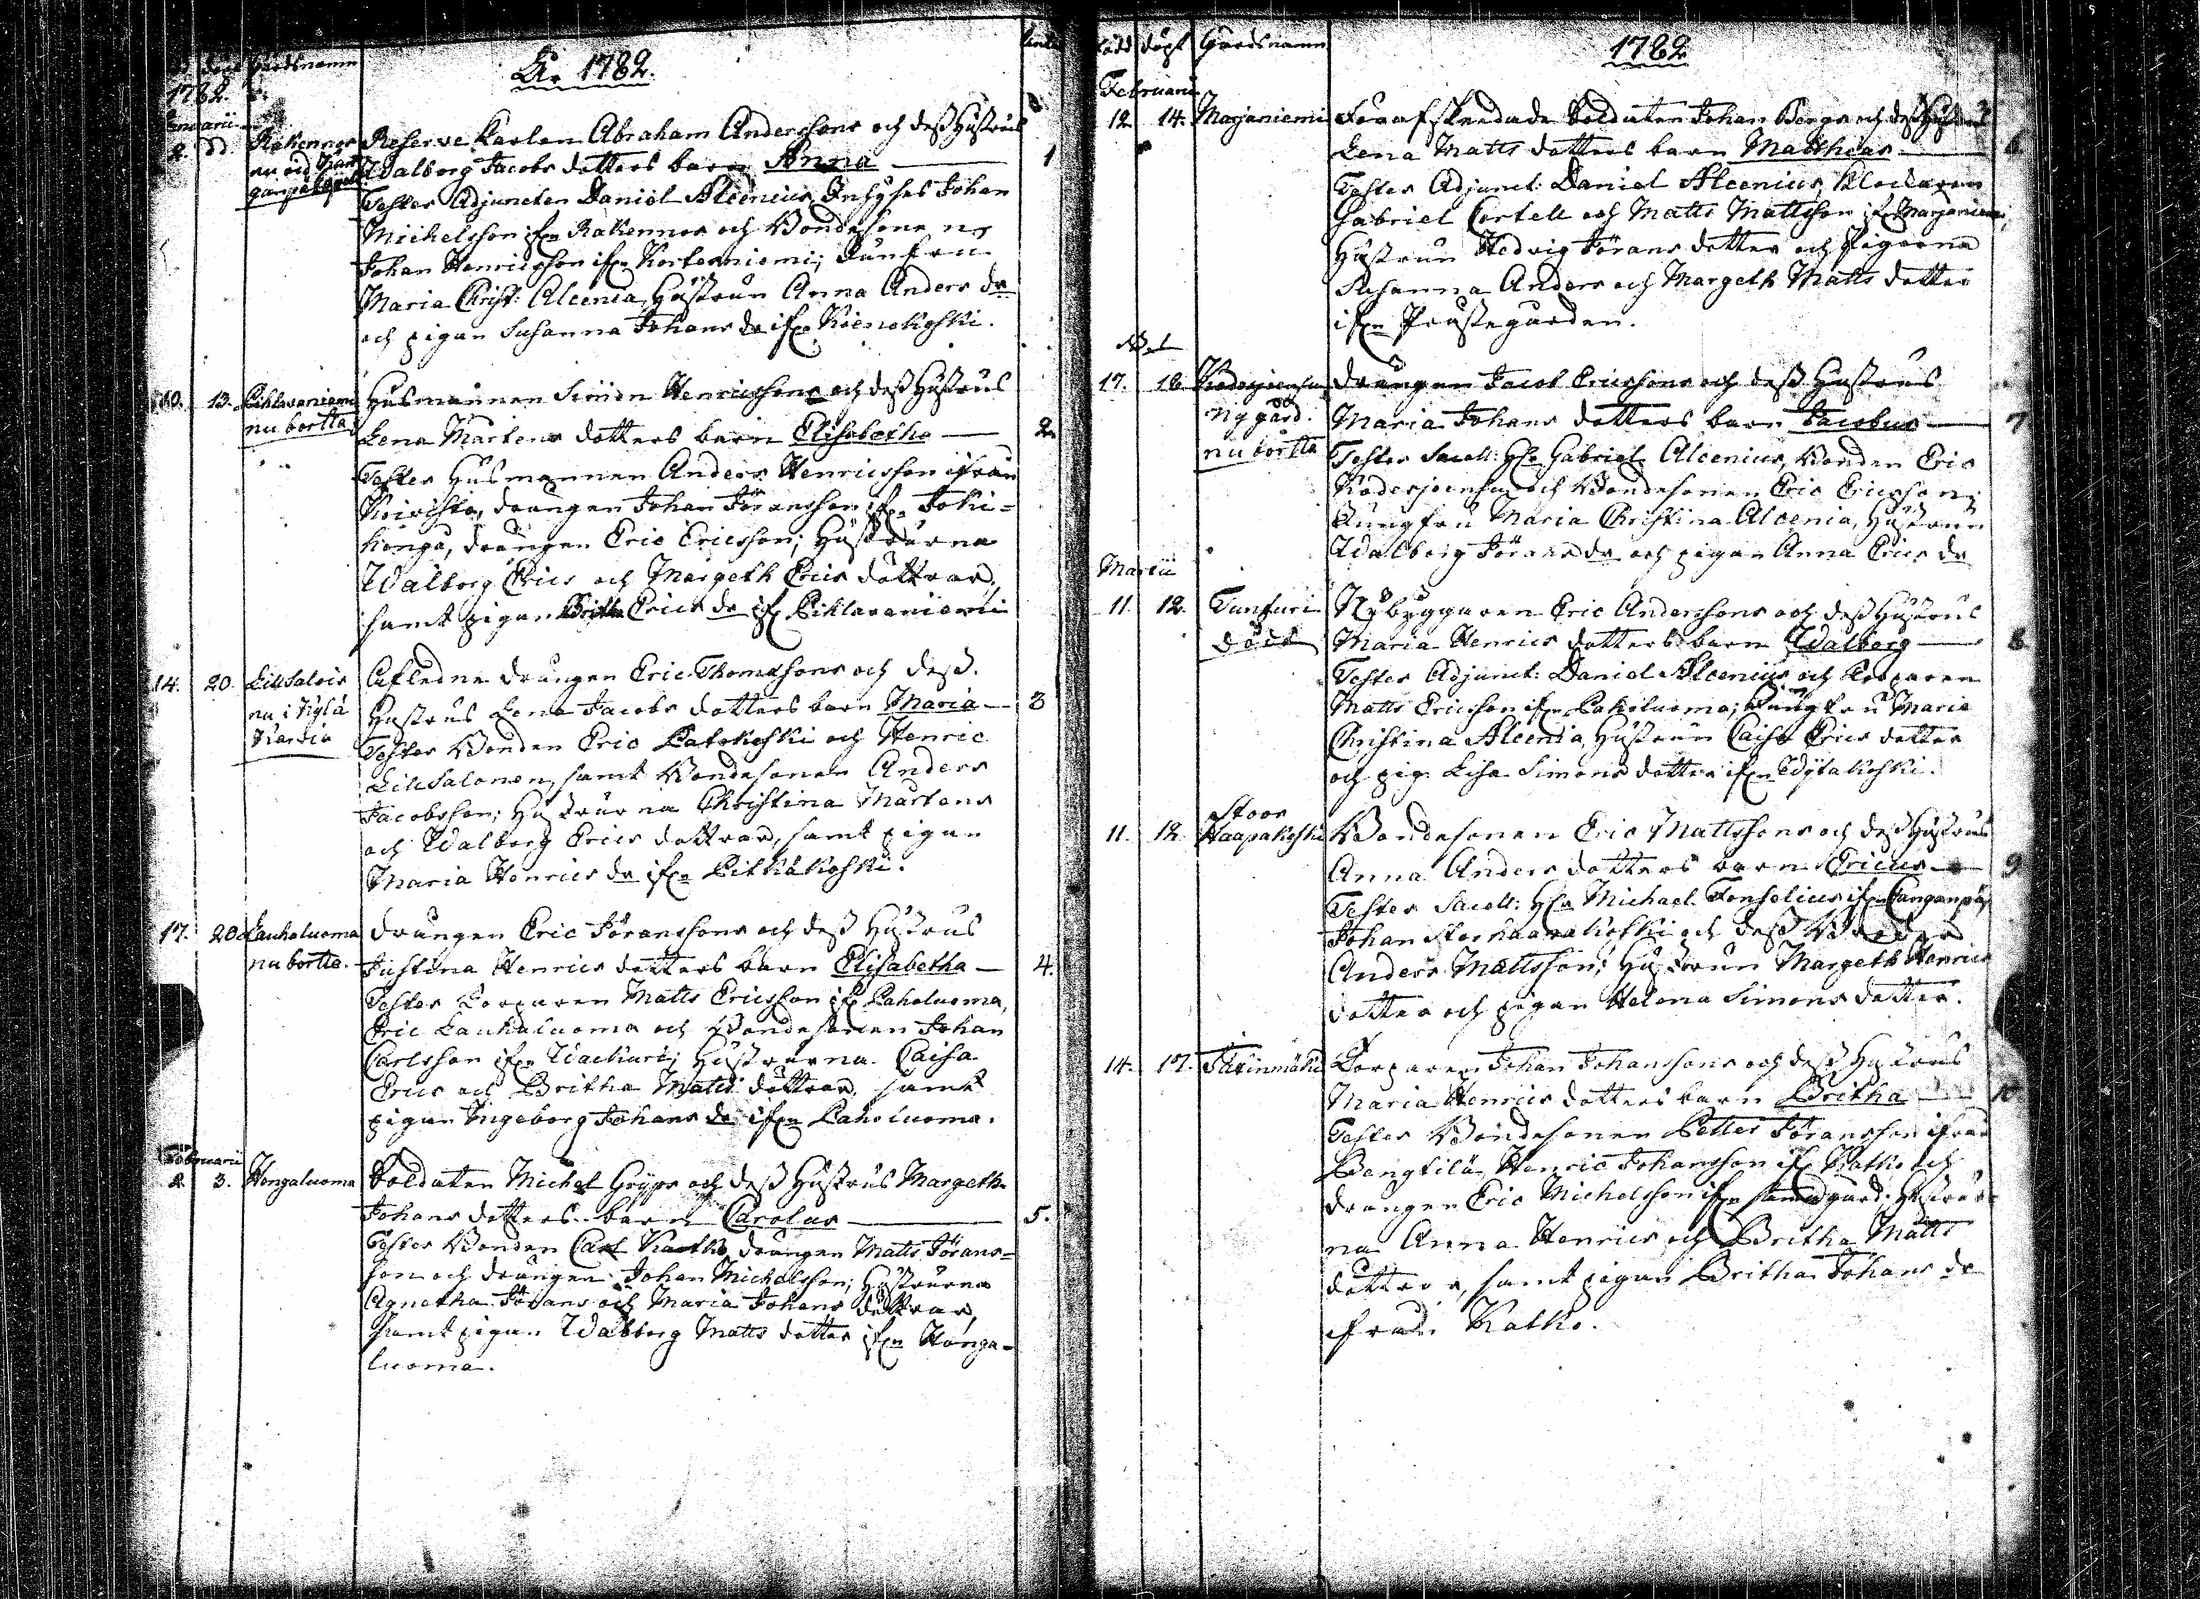 döpt Gårdsnamn
År 1782.
1782.
Januarii
2. Rakennos Reserve Karlen Abraham Anderssons och dess Hustrus
Walborg Jacobs dotters barn Anna — 1
Testes Adjuncten Daniel Alcenius, Inhyses Johan
Michelsson ifrn Rakennos och Bondesonen
Johan Henricsson ifrn Kortesniemi; Junfru
Maria Christ: Alcenia, Hustrun Anna Anders dr
och pigan Susanna Johans dr ifrn
10. 13. Husmannen Simon Henricssons och dess Hustrus
nu bortta Lena Martens dotters barn Elisabetha — 2.
Testes Husmannen Anders Henricsson ifrån
drängen Johan Jöransson ifrn Joki-
kangas, drängen Eric Ericsson; Hustrurna
Walborg Erics och Margeth Erics döttrar,
samt pigan Britha Erics dr ifrn
14. 20. Lill Salois Afledne drängen Eric Thomassons och dess
nu i Kylä Hustrus Lena Jacobs dotters barn Maria — 3
Testes Bonden Eric och Henric
Lill Salonen, samt Bondesonen Anders
Jacobsson; Hustrurna Christina Martens
och Walborg Erics döttrar, samt pigan
Maria Henrics dr ifrn Pitkäkoski.
17. 20. Lauhaluoma drängen Eric Jöranssons och dess Hustrus
nu bortta. Justina Henrics dotters barn Elisabetha — 4.
Testes Torparen Matts Ericsson ifrn Paholuoma,
Eric Lauhaluoma och Bondesonen Johan
Carlsson ifrn Hustrurna Caisa
Erics och Britha Matts döttrar, samt
pigan Ingeborg Johans dr ifrn Paholuoma.
Februarii
2. 3. Hongaluoma Soldaten Michel Gryps och dess Hustrus Margeth
Johans dotters barn Carolus — 5.
Testes Bonden Carl drängen Matts Jörans-
son och drängen Johan Michelsson; Hustrurna
Agnetha Jörans och Maria Johans döttrar,
samt pigan Walborg Matts dotter ifrn Honga-
luoma.
född döpt Gårdsnamn
1782
Februarii
12. 14. Marjaniemi Förafskedade Soldaten Johan Bergs och dess Hustrus
Lena Matts dotters barn Matthias — 6
Testes Adjunct: Daniel Alcenius, Klockaren
Gabriel Cortell och Matts Mattsson ifrn Marjaniemi,
Hustrun Hedvig Jörans dotter och Pigorna
Susanna Anders och Margeth Matts dotter
ifrn Prästegården.
17. 18. drängen Jacob Ericssons och dess Hustrus
nygård. Maria Johans dotters barn Jacobus — 7
nu bortta Testes Sacell: Hr Gabriel Alcenius, Bonden Eric
och Bondesonen Eric Ericsson;
Jungfru Maria Christina Alcenia, Hustrun
Walborg Jörans dr och pigan Anna Erics dr
Martii
11. 12. Tunturi Nybyggaren Eric Anderssons och dess Hustrus
död Maria Henrics dotters barn Walborg — 8
Testes Adjunct: Daniel Alcenius och Torparen
Matts Ericsson ifrn Pakoluoma; Jungfru Maria
Christina Alcenia, Hustrun Caisa Erics dotter
och pig. Lisa Simons dotter ifrn
Stoor
11. 12. Haapakoski Bondesonen Eric Mattssons och dess Hustrus
Anna Anders dotters barn Ericus — 9
Testes Sacell: Hr Michael Forselius ifrn
Johan Storhaapakoski och dess
Anders Mattsson; Hustrun Margeth Henrics
dotter och pigan Helena Simons dotter.
14. 17. Torparen Johan Johanssons och dess Hustrus
Maria Henrics dotters barn Britha — 10
Testes Bondesonen Petter Jöransson ifrån
Bengtilä, Henric Johansson ifrn Katko och
drängen Eric Michelsson ifrn Hustrur-
na Anna Henrics och Britha Matts
dottrar, samt pigan Britha Johans dr
ifrån Katko.